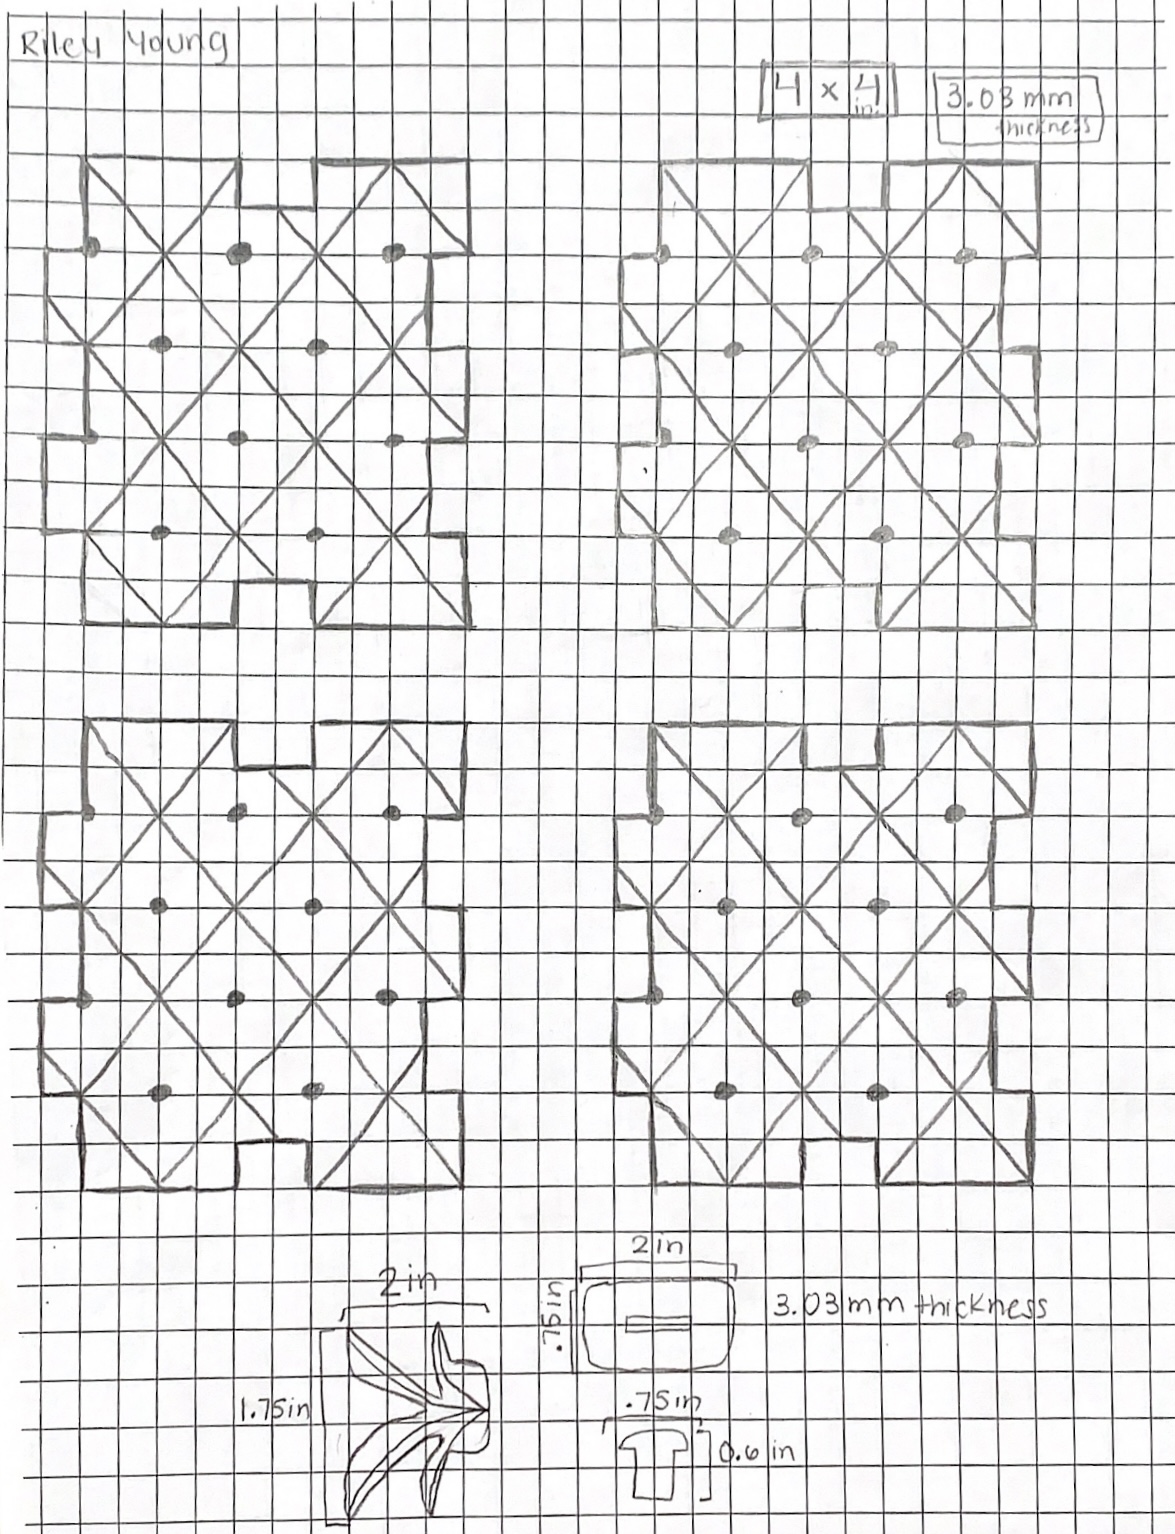 Riley Young
4 x 4 in.
3.03 mm
thickness
2 in
2 in
.75in
3.03 mm thickness
1.75in
.75in
0.6 in